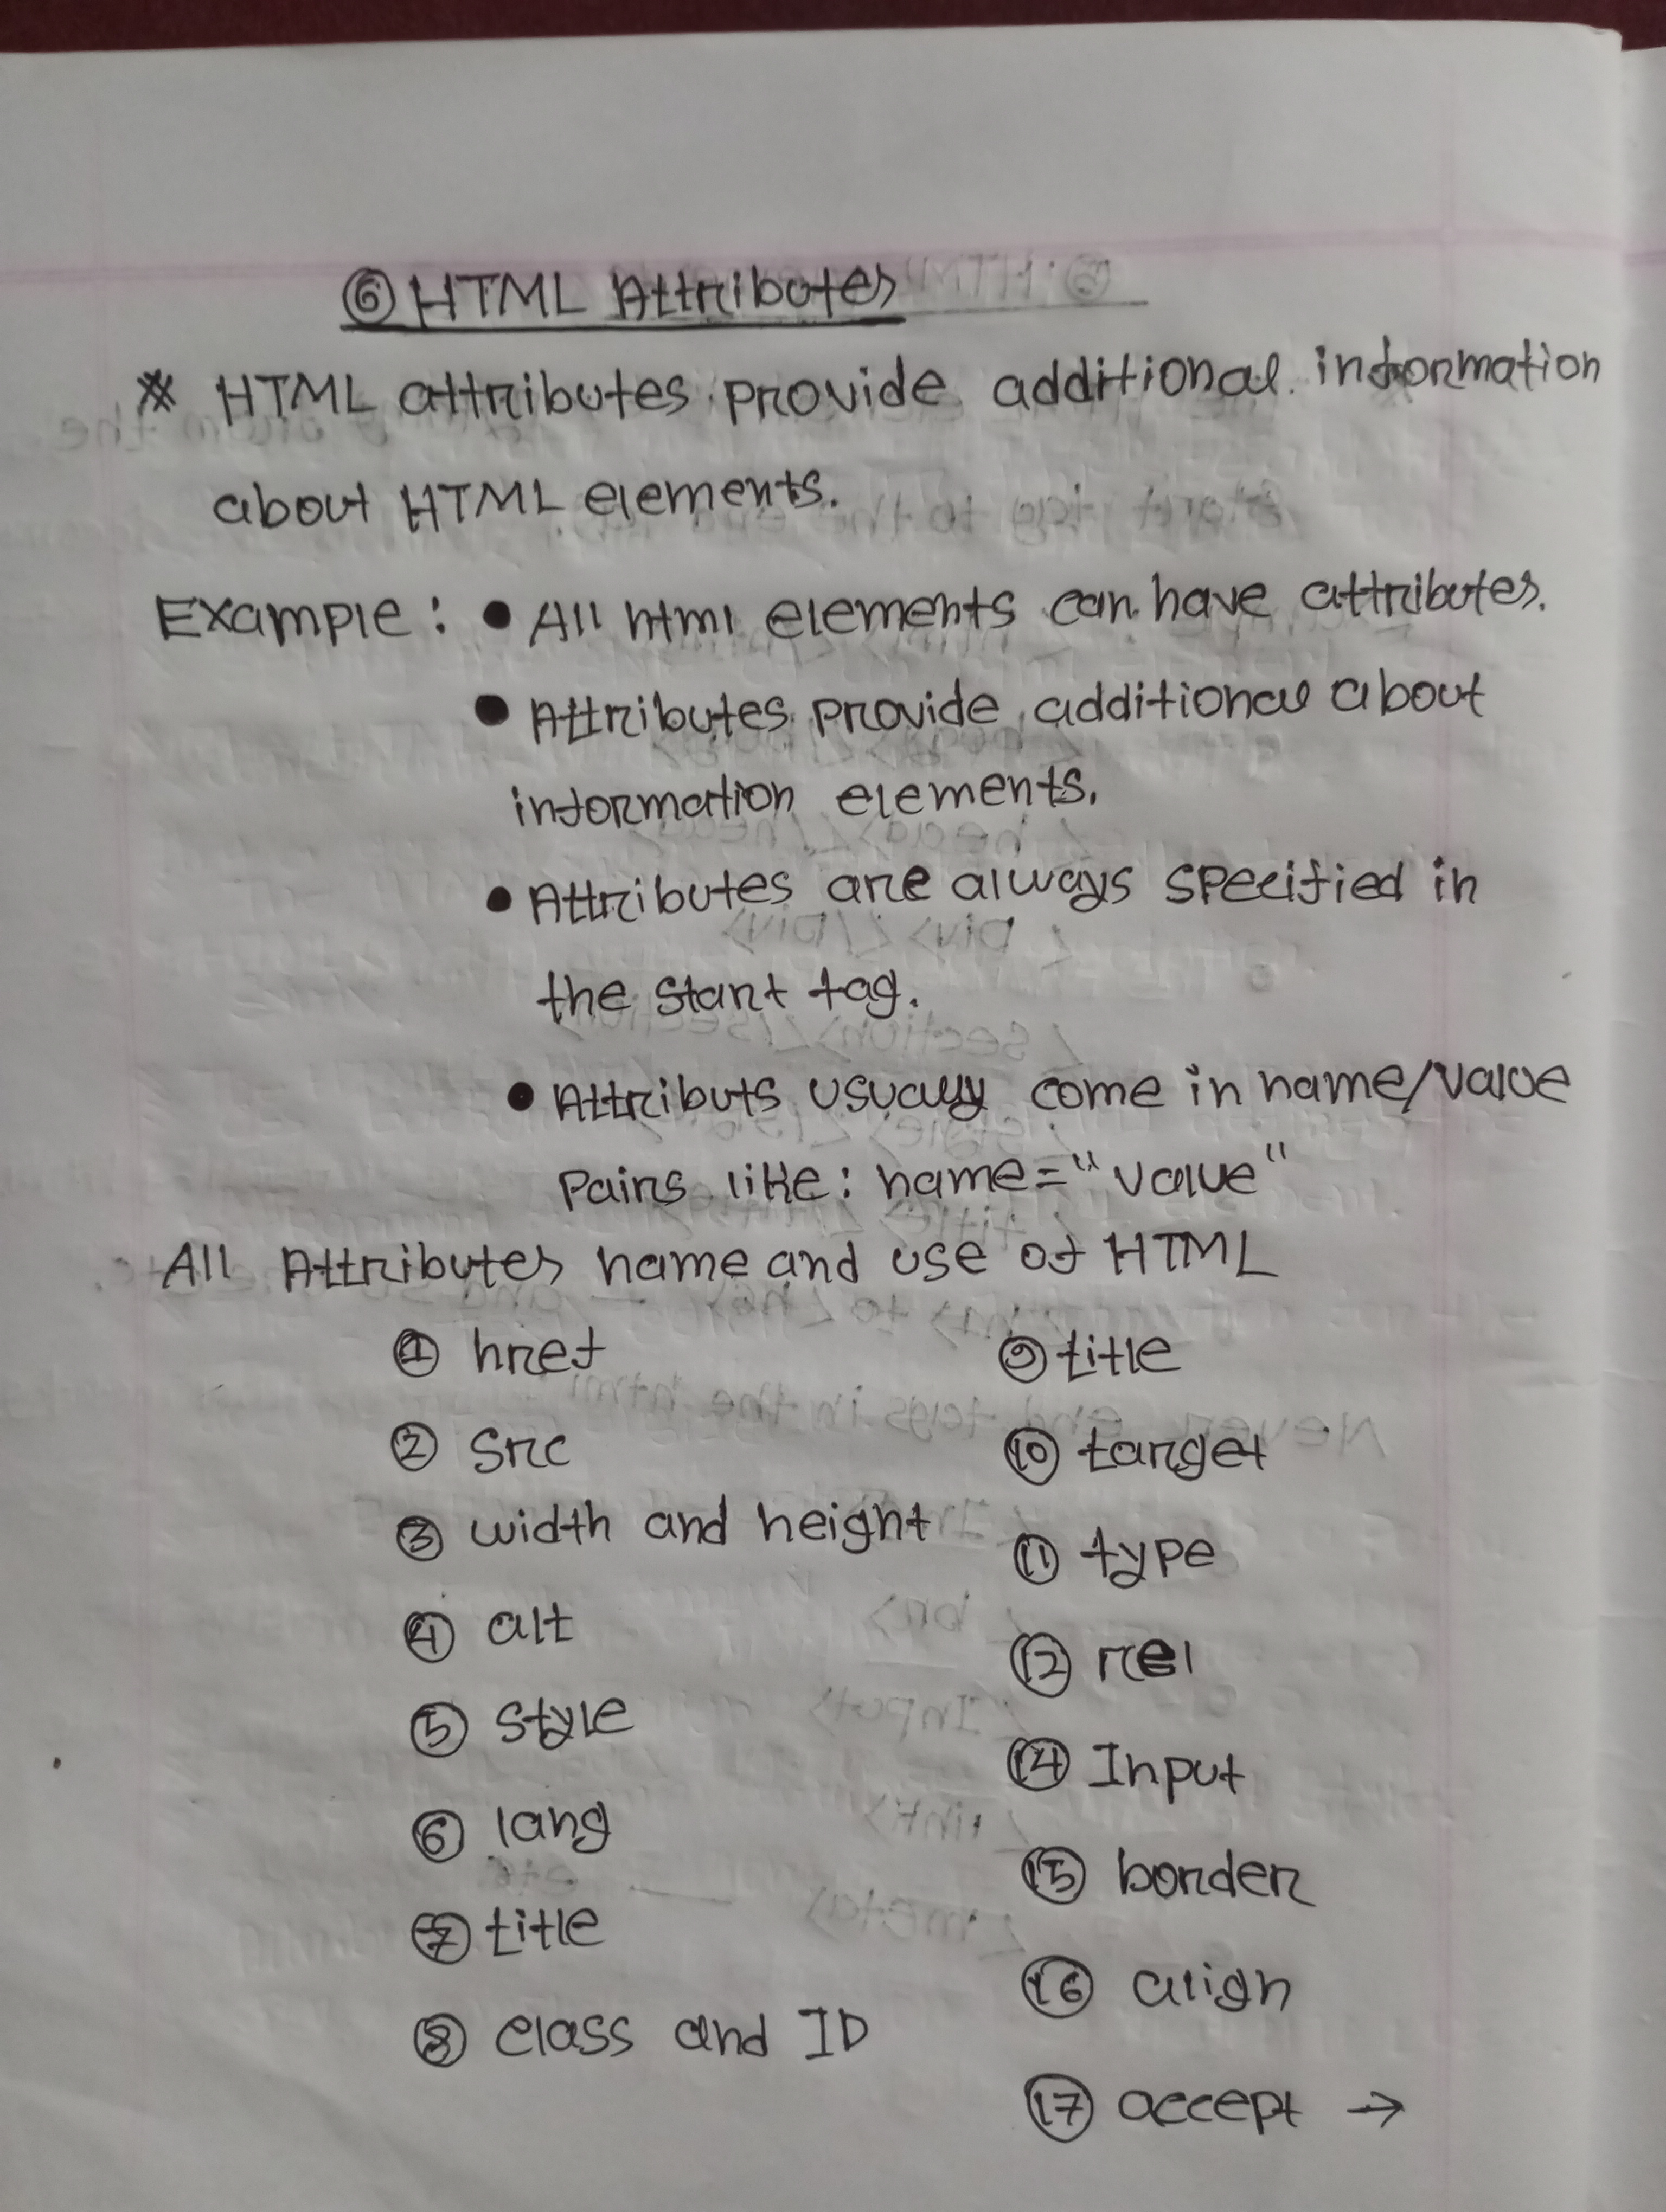 ⑥ HTML Attributes
* HTML attributes provide additional information
about HTML elements.
Example: ● All html elements can have attributes.
● Attributes provide additional about
information elements.
● Attributes are always specified in
the start tag.
● Attributs usually come in name/value
pairs like: name="value"
All Attributes name and use of HTML
① href
② src
③ width and height
④ alt
⑤ style
⑥ lang
⑦ title
⑧ class and ID
⑨ title
⑩ target
⑪ type
⑫ rel
⑭ Input
⑮ border
⑯ align
⑰ accept →